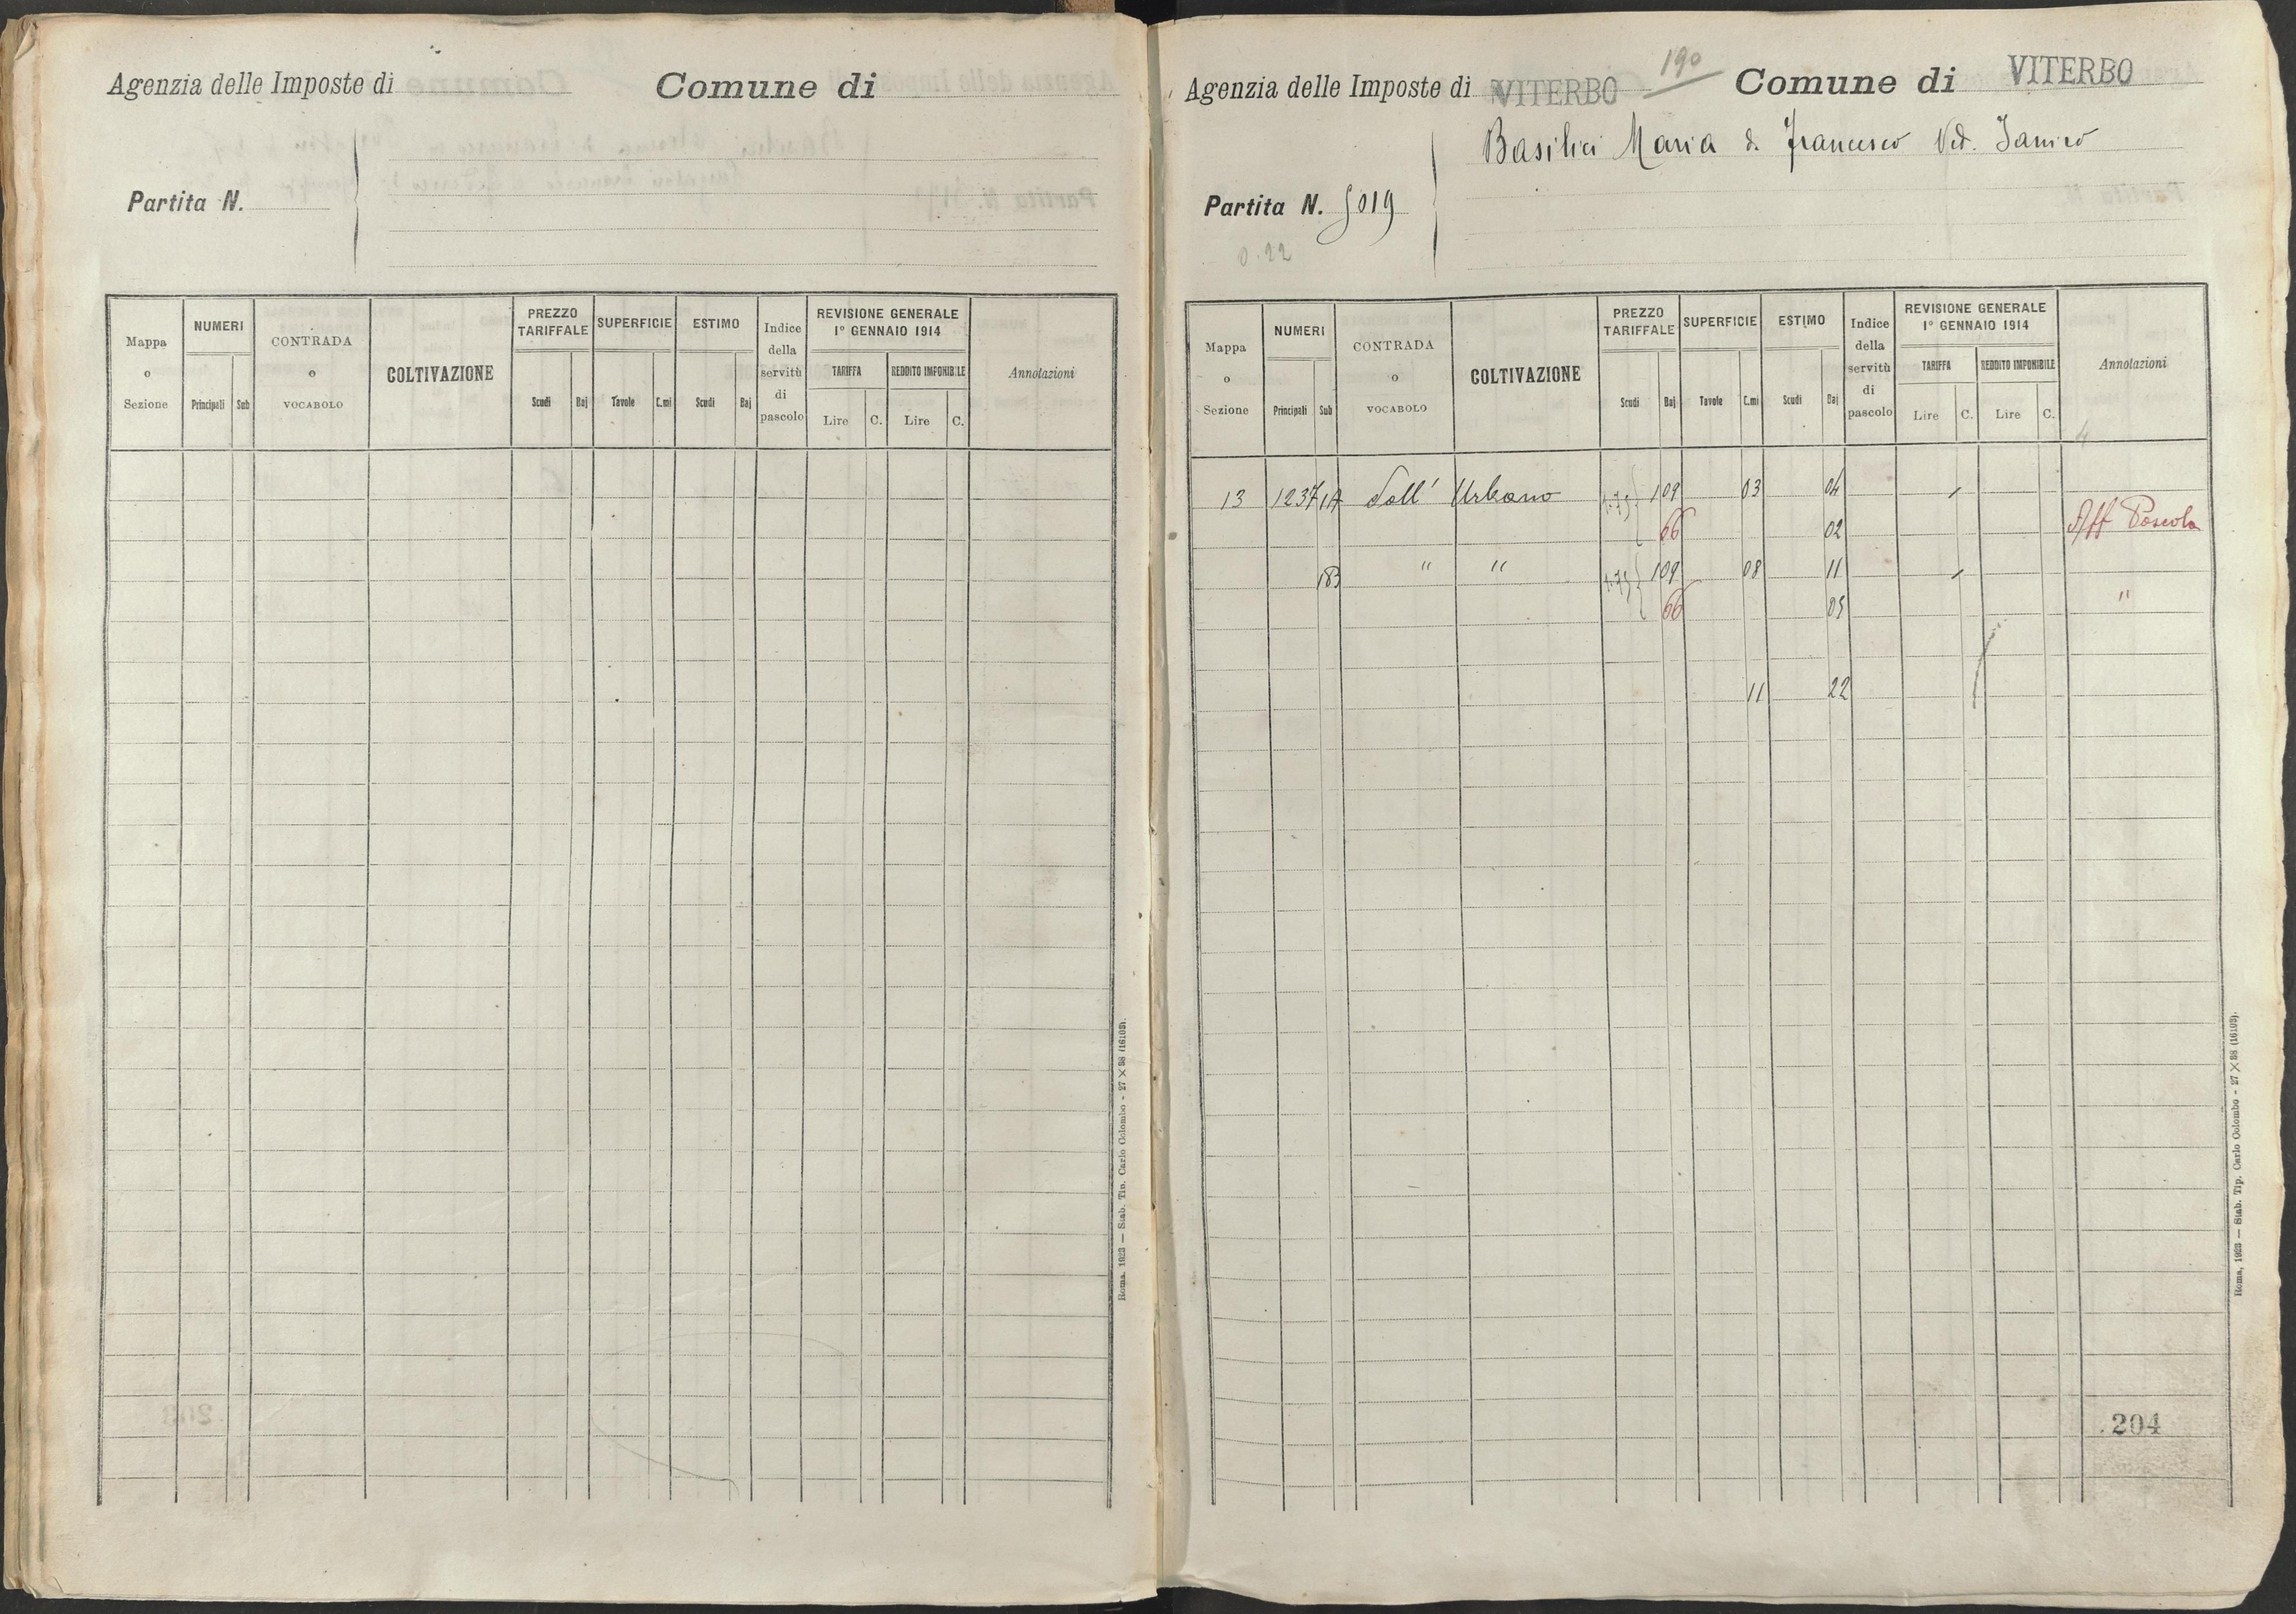 Agenzia delle Imposte di
Comune di
Partita N.
Mappa o Sezione
NUMERI
Principali Sub
CONTRADA o VOCABOLO
COLTIVAZIONE
PREZZO TARIFFALE
Scudi Baj
SUPERFICIE
Tavole C.mi
ESTIMO
Scudi Baj
Indice della servitù di pascolo
REVISIONE GENERALE
1° GENNAIO 1914
TARIFFA
Lire C.
REDDITO IMPONIBILE
Lire C.
Annotazioni
Roma, 1923 — Stab. Tip. Carlo Colombo - 27 × 38 (16103).
Agenzia delle Imposte di VITERBO
190
Comune di VITERBO
Basilici Maria di Francesco Ved.
Partita N. 5019
0.22
Mappa o Sezione
NUMERI
Principali Sub
CONTRADA o VOCABOLO
COLTIVAZIONE
PREZZO TARIFFALE
Scudi Baj
SUPERFICIE
Tavole C.mi
ESTIMO
Scudi Baj
Indice della servitù di pascolo
REVISIONE GENERALE
1° GENNAIO 1914
TARIFFA
Lire C.
REDDITO IMPONIBILE
Lire C.
Annotazioni
4
13 1237 1A Soll' Urbano 1.75 109 03 04
66 02 Aff Pascolo
1B " " 1.75 109 08 11
66 05 "
11 22
204
Roma, 1923 — Stab. Tip. Carlo Colombo - 27 × 38 (16103).